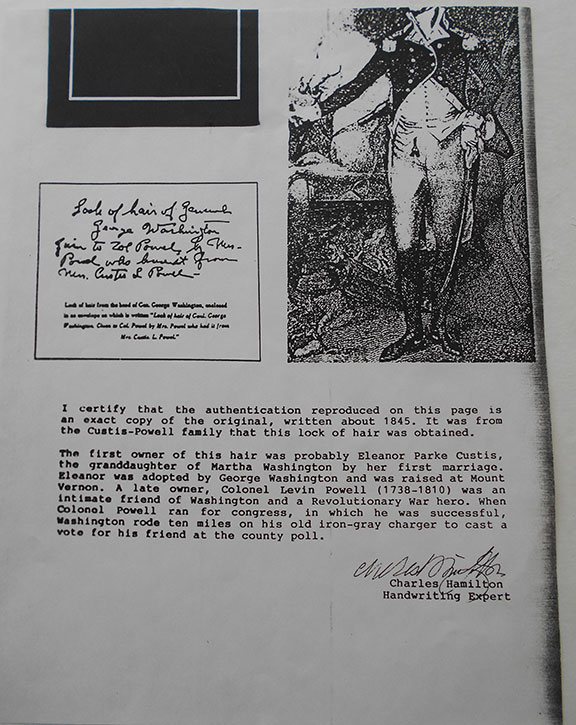 Lock of hair of General
George Washington
Given to Col Powel by Mrs.
Powel who had it from
Mrs. Custis L Powel
Lock of hair from the head of Gen. George Washington, enclosed
in an envelope on which is written "Lock of hair of Genl. George
Washington. Given to Col. Powel by Mrs. Powel who had it from
Mrs Custis L. Powel."
I certify that the authentication reproduced on this page is
an exact copy of the original, written about 1845. It was from
the Custis-Powell family that this lock of hair was obtained.
The first owner of this hair was probably Eleanor Parke Custis,
the granddaughter of Martha Washington by her first marriage.
Eleanor was adopted by George Washington and was raised at Mount
Vernon. A late owner, Colonel Levin Powell (1738-1810) was an
intimate friend of Washington and a Revolutionary War hero. When
Colonel Powell ran for congress, in which he was successful,
Washington rode ten miles on his old iron-gray charger to cast a
vote for his friend at the county poll.
Charles Hamilton
Charles Hamilton
Handwriting Expert